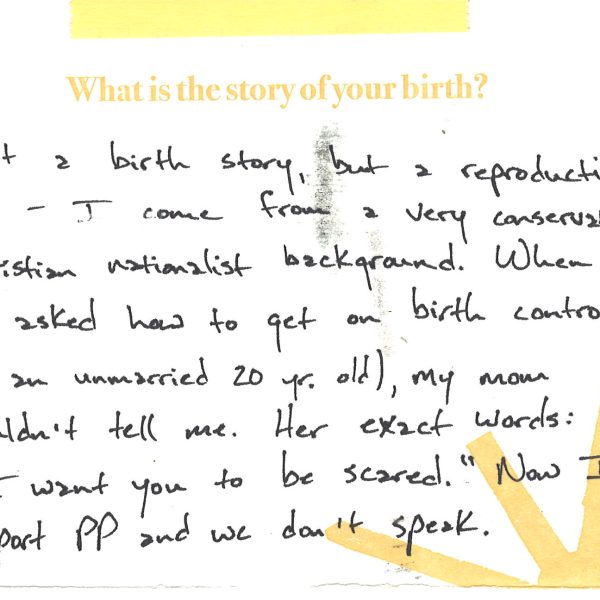 What is the story of your birth?
t a birth story, but a reproducti
- I come from a very conserva
istian nationalist background. When
asked how to get on birth contro
an unmarried 20 yr. old), my mom
ldn't tell me. Her exact words:
I want you to be scared." Now I
port PP and we don't speak.